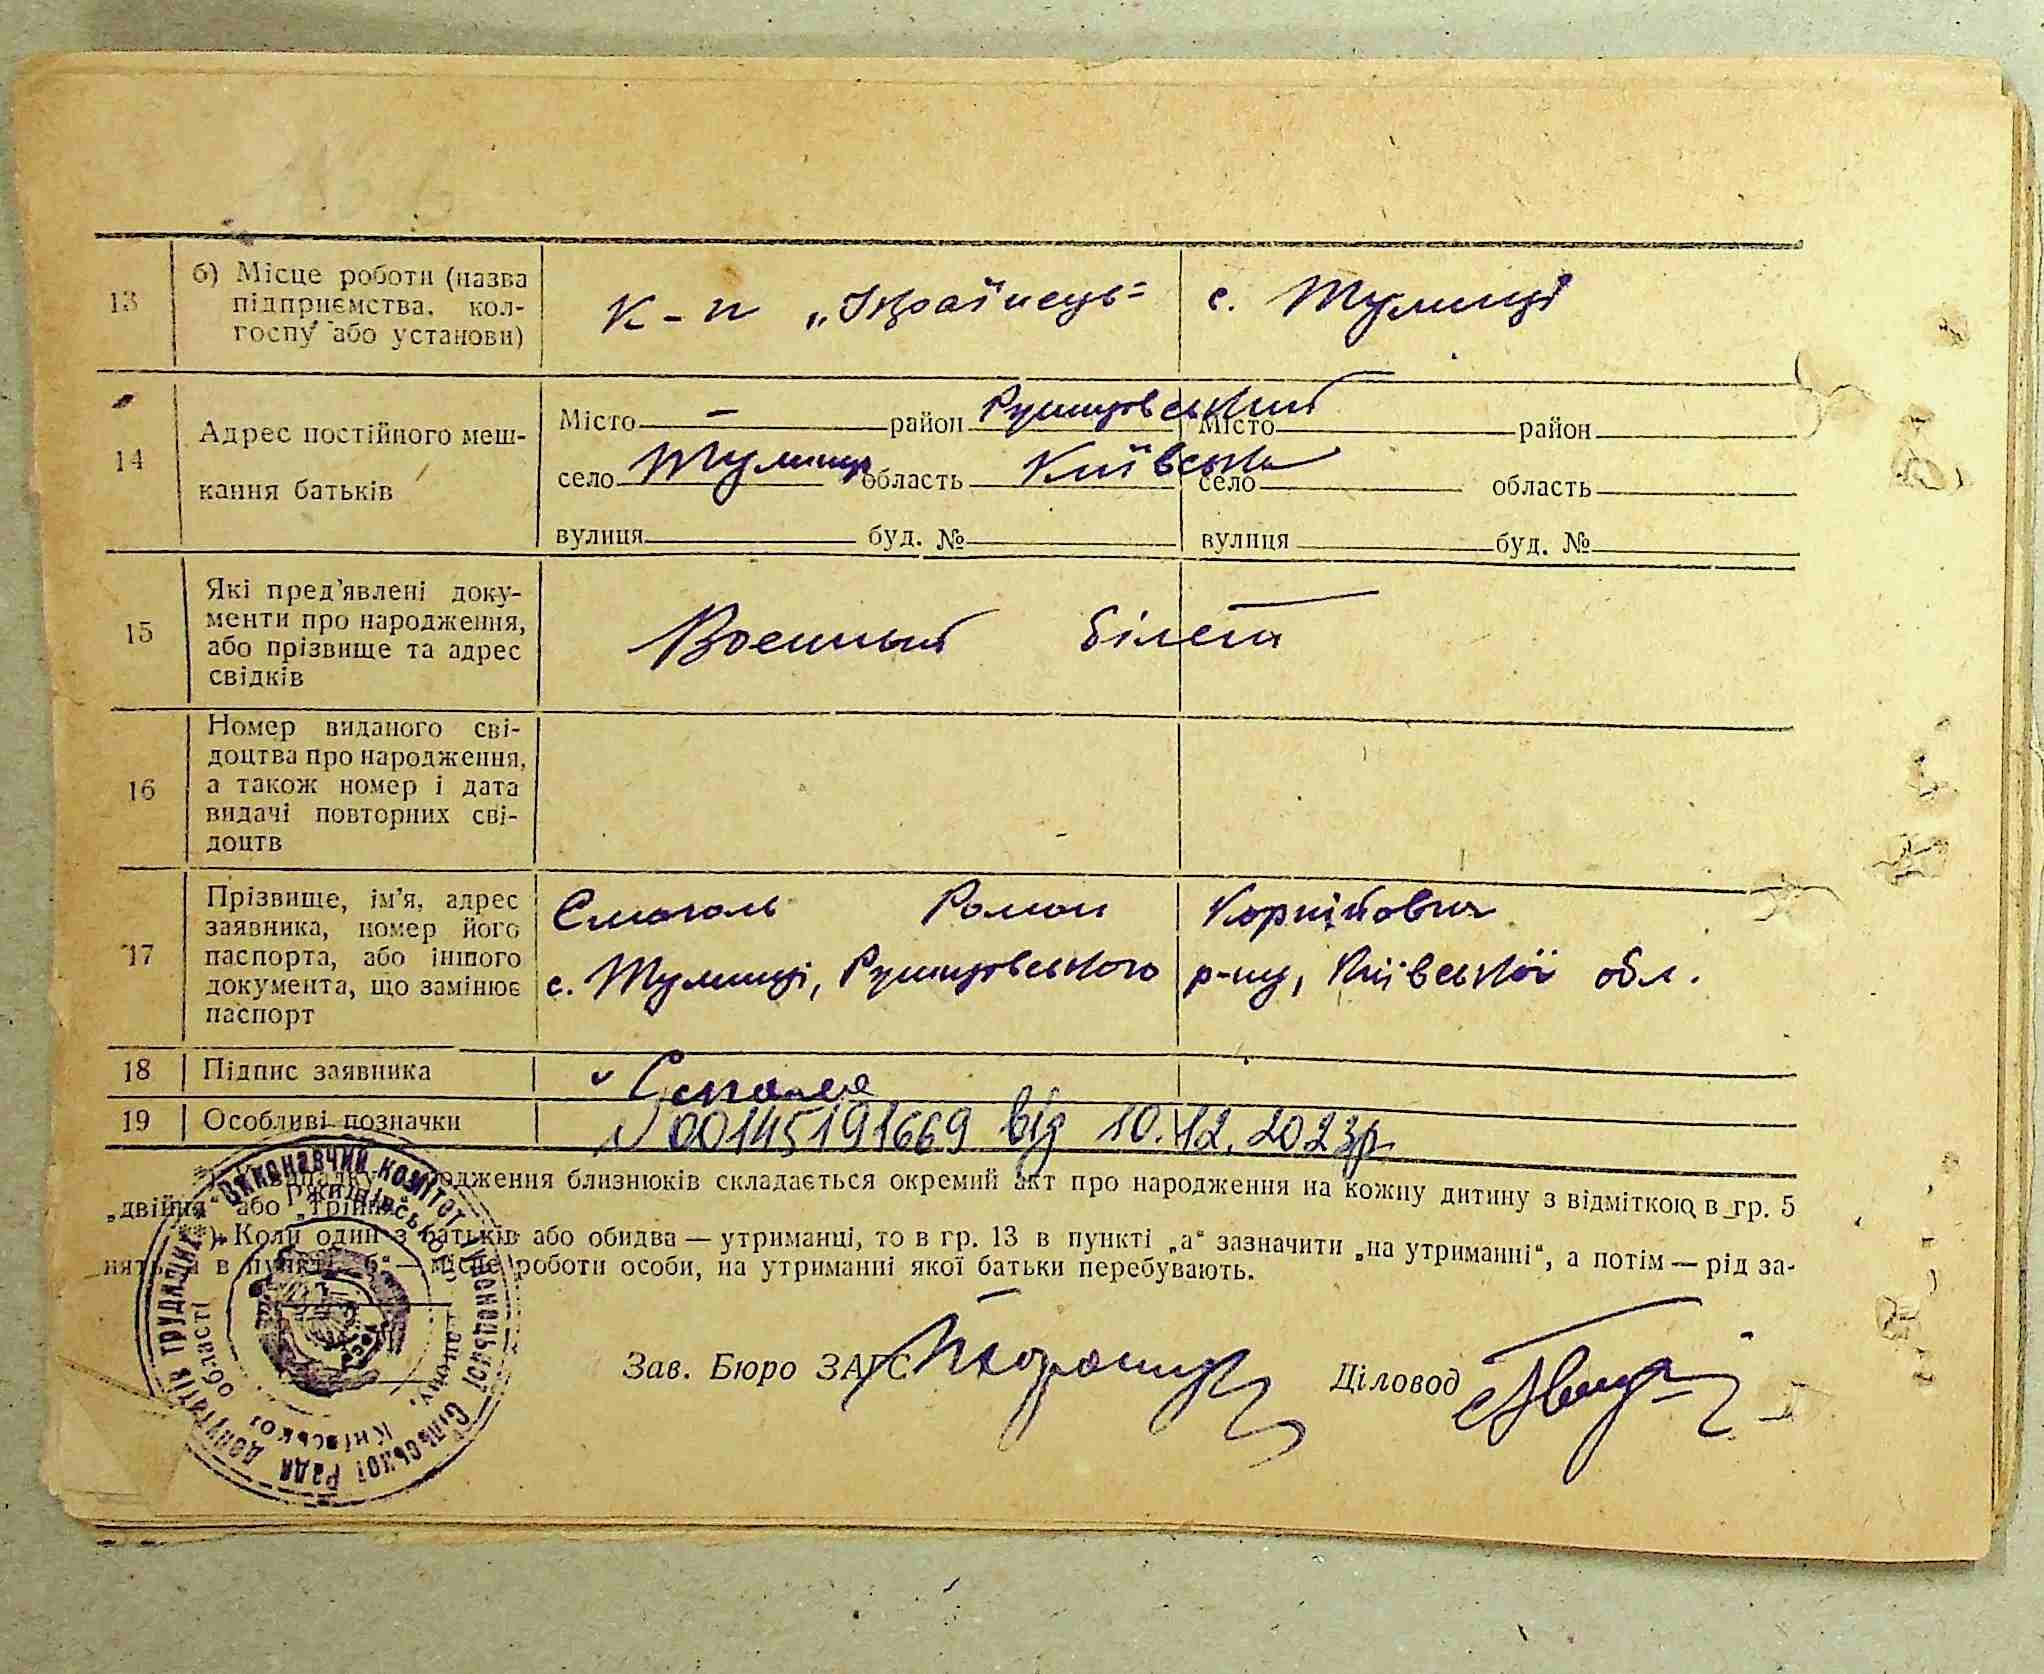 13 б) Місце роботи (назва
підприємства, кол-
госпу або установи)
к-п „Українець" с. Тулинці
14 Адрес постійного меш-
кання батьків
Місто — район Ржищівський Місто район
село Тулинці область Київська село область
вулиця буд. № вулиця буд. №
15 Які пред'явлені доку-
менти про народження,
або прізвище та адрес
свідків
Военный білет
16 Номер виданого сві-
доцтва про народження,
а також номер і дата
видачі повторних сві-
доцтв
17 Прізвище, ім'я, адрес
заявника, номер його
паспорта, або іншого
документа, що замінює
паспорт
Смоголь Роман Корнійович
с. Тулинці, Ржищівського р-ну, Київської обл.
18 Підпис заявника
19 Особливі позначки N 00145191669 від 10.12.2023р.
випадку народження близнюків складається окремий акт про народження на кожну дитину з відміткою в гр. 5
„двійня" або „трійня".
Коли один з батьків або обидва — утриманці, то в гр. 13 в пункті „а" зазначити „на утриманні", а потім — рід за-
няття, а в пункті „б" — місце роботи особи, на утриманні якої батьки перебувають.
Зав. Бюро ЗАГС Діловод
Виконавчий комітет Сільської Ради депутатів трудящих
Ржищівського району, Київської області
УРСР